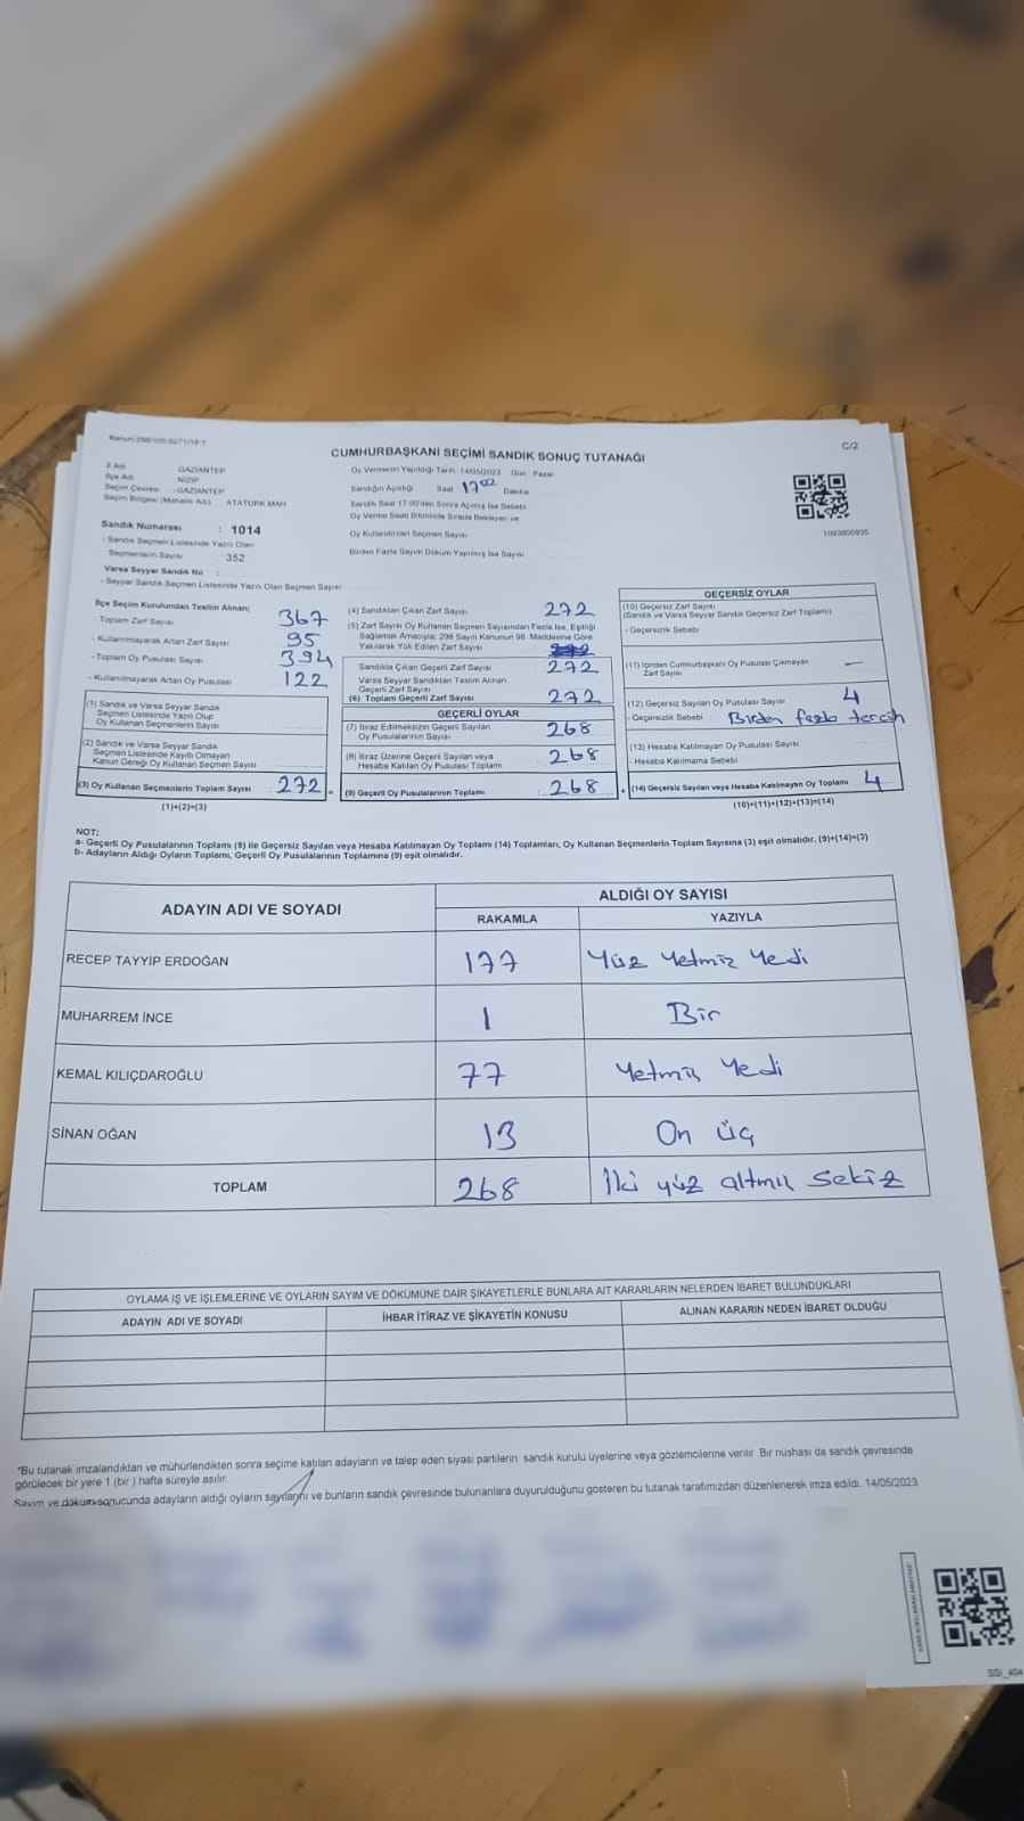 C/2
CUMHURBAŞKANI SEÇİMİ SANDIK SONUÇ TUTANAĞI
İl Adı GAZİANTEP
İlçe Adı NİZİP
Seçim Çevresi GAZİANTEP
Seçim Bölgesi (Mahalle Adı) ATATÜRK MAH
Oy Vermenin Yapıldığı Tarih 14/05/2023 Gün Pazar
Sandığın Açıldığı Saat 17 02 Dakika
Oy Kullandırılan Seçmen Sayısı
Birden Fazla Sayım Döküm Yapılmış İse Sayısı
Sandık Numarası : 1014
- Sandık Seçmen Listesinde Yazılı Olan
Seçmenlerin Sayısı 352
Varsa Seyyar Sandık No :
- Seyyar Sandık Seçmen Listesinde Yazılı Olan Seçmen Sayısı
İlçe Seçim Kurulundan Teslim Alınan;
Toplam Zarf Sayısı 367
- Kullanılmayarak Artan Zarf Sayısı 95
- Toplam Oy Pusulası Sayısı 394
- Kullanılmayarak Artan Oy Pusulası 122
(1) Sandık ve Varsa Seyyar Sandık
Seçmen Listesinde Yazılı Olup
Oy Kullanan Seçmenlerin Sayısı
(2) Sandık ve Varsa Seyyar Sandık
Seçmen Listesinde Kayıtlı Olmayan
Kanun Gereği Oy Kullanan Seçmen Sayısı
(3) Oy Kullanan Seçmenlerin Toplam Sayısı 272
(1)+(2)=(3)
(4) Sandıktan Çıkan Zarf Sayısı 272
(5) Zarf Sayısı Oy Kullanan Seçmen Sayısından Fazla İse, Eşitliği
Sağlamak Amacıyla; 298 Sayılı Kanunun 98. Maddesine Göre
Yakılarak Yok Edilen Zarf Sayısı
Sandıkta Çıkan Geçerli Zarf Sayısı 272
Varsa Seyyar Sandıktan Teslim Alınan
Geçerli Zarf Sayısı
(6) Toplam Geçerli Zarf Sayısı 272
GEÇERLİ OYLAR
(7) İtiraz Edilmeksizin Geçerli Sayılan
Oy Pusulalarının Sayısı 268
(8) İtiraz Üzerine Geçerli Sayılan veya
Hesaba Katılan Oy Pusulası Toplamı 268
(9) Geçerli Oy Pusulalarının Toplamı 268
GEÇERSİZ OYLAR
(10) Geçersiz Zarf Sayısı
(Sandık ve Varsa Seyyar Sandık Geçersiz Zarf Toplamı)
- Geçersizlik Sebebi
(11) İçinden Cumhurbaşkanı Oy Pusulası Çıkmayan
Zarf Sayısı —
(12) Geçersiz Sayılan Oy Pusulası Sayısı 4
- Geçersizlik Sebebi Birden fazla tercih
(13) Hesaba Katılmayan Oy Pusulası Sayısı
- Hesaba Katılmama Sebebi
(14) Geçersiz Sayılan veya Hesaba Katılmayan Oy Toplamı 4
(10)+(11)+(12)+(13)=(14)
NOT:
a- Geçerli Oy Pusulalarının Toplamı (9) ile Geçersiz Sayılan veya Hesaba Katılmayan Oy Toplamı (14) Toplamları, Oy Kullanan Seçmenlerin Toplam Sayısına (3) eşit olmalıdır. (9)+(14)=(3)
b- Adayların Aldığı Oyların Toplamı, Geçerli Oy Pusulalarının Toplamına (9) eşit olmalıdır.
ADAYIN ADI VE SOYADI ALDIĞI OY SAYISI
RAKAMLA YAZIYLA
RECEP TAYYİP ERDOĞAN 177 Yüz Yetmiş Yedi
MUHARREM İNCE 1 Bir
KEMAL KILIÇDAROĞLU 77 Yetmiş Yedi
SİNAN OĞAN 13 On üç
TOPLAM 268 İki yüz altmış sekiz
OYLAMA İŞ VE İŞLEMLERİNE VE OYLARIN SAYIM VE DÖKÜMÜNE DAİR ŞİKAYETLERLE BUNLARA AİT KARARLARIN NELERDEN İBARET BULUNDUKLARI
ADAYIN ADI VE SOYADI İHBAR İTİRAZ VE ŞİKAYETİN KONUSU ALINAN KARARIN NEDEN İBARET OLDUĞU
"Bu tutanak imzalandıktan ve mühürlendikten sonra seçime katılan adayların ve talep eden siyasi partilerin sandık kurulu üyelerine veya gözlemcilerine verilir. Bir nüshası da sandık çevresinde
görülecek bir yere 1 (bir) hafta süreyle asılır.
Sayım ve döküm sonucunda adayların aldığı oyların sayılarını ve bunların sandık çevresinde bulunanlara duyurulduğunu gösteren bu tutanak tarafımızdan düzenlenerek imza edildi. 14/05/2023